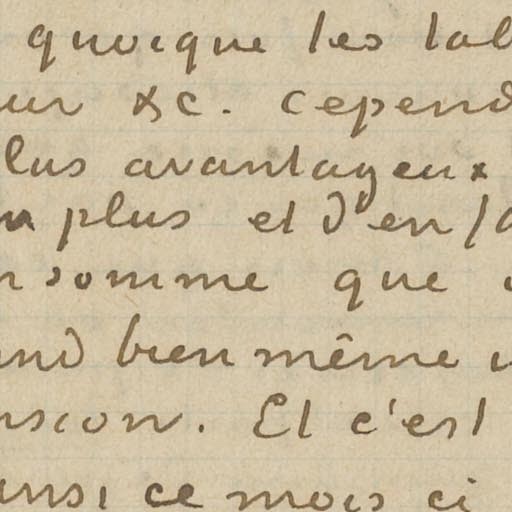 quoique les tab
ur &c. cepend
lus avantageux
plus et d'en fa
nsomme que
and bien même
nsion. Et c'est
insi ce mois ci